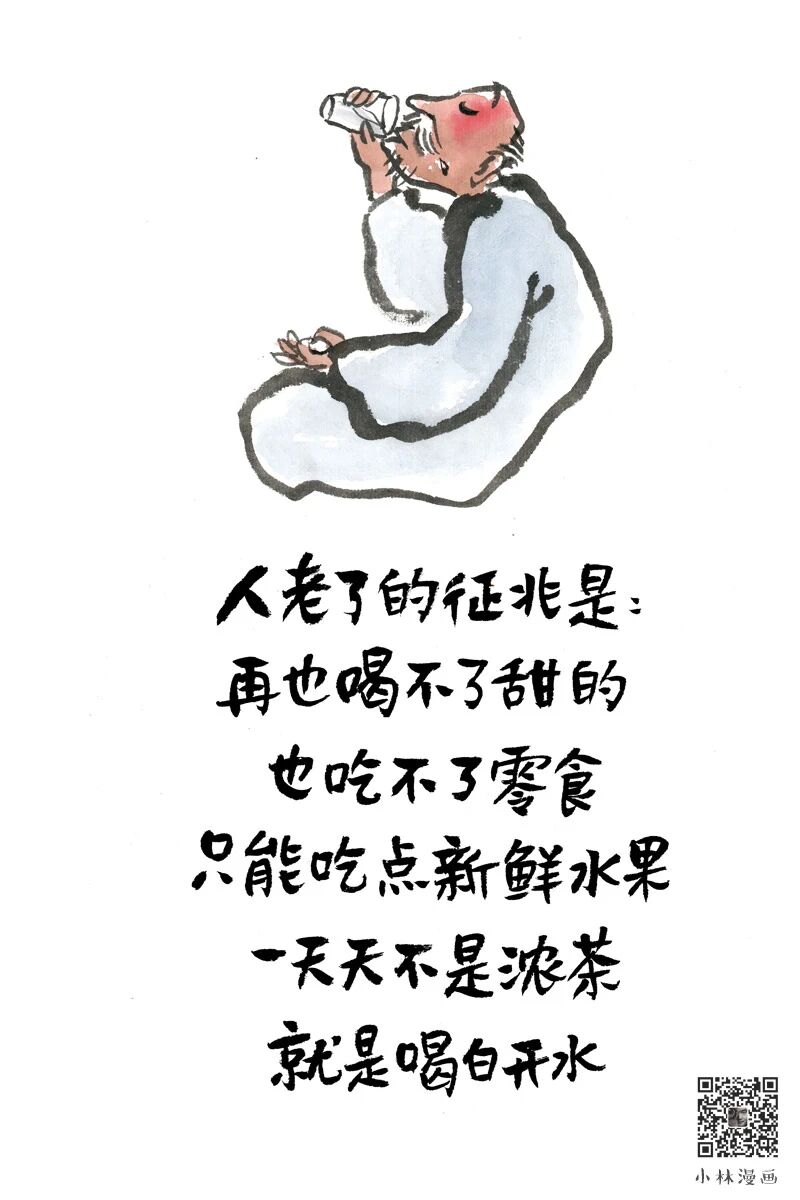 人老了的征兆是:
再也喝不了甜的
也吃不了零食
只能吃点新鲜水果
一天天不是浓茶
就是喝白开水
小林漫画